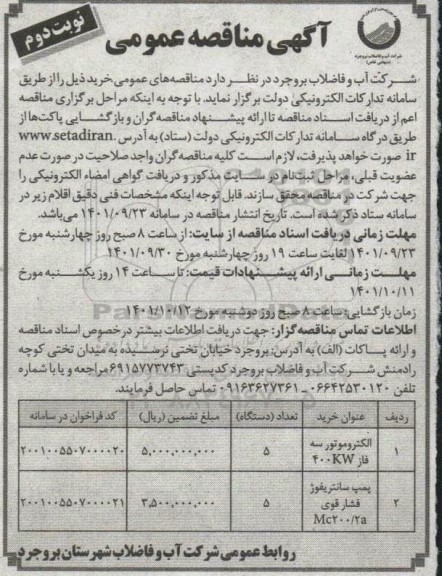 نوبت دوم
آگهی مناقصه عمومی
شرکت آب و فاضلاب بروجرد
(سهامی خاص)
شرکت آب و فاضلاب بروجرد در نظر دارد مناقصه‌های عمومی خرید ذیل را از طریق
سامانه تدارکات الکترونیکی دولت برگزار نماید. با توجه به اینکه مراحل برگزاری مناقصه
اعم از دریافت اسناد مناقصه تا ارائه پیشنهاد مناقصه‌گران و بازگشایی پاکت‌ها از
طریق درگاه سامانه تدارکات الکترونیکی دولت (ستاد) به آدرس www.setadiran.
ir صورت خواهد پذیرفت، لازم است کلیه مناقصه‌گران واجد صلاحیت در صورت عدم
عضویت قبلی، مراحل ثبت‌نام در سایت مذکور و دریافت گواهی امضاء الکترونیکی را
جهت شرکت در مناقصه محقق سازند. قابل توجه اینکه مشخصات فنی دقیق اقلام زیر در
سامانه ستاد ذکر شده است. تاریخ انتشار مناقصه در سامانه ۱۴۰۱/۰۹/۲۳ می‌باشد.
مهلت زمانی دریافت اسناد مناقصه از سایت: از ساعت ۸ صبح روز چهارشنبه مورخ
۱۴۰۱/۰۹/۲۳ لغایت ساعت ۱۹ روز چهارشنبه مورخ ۱۴۰۱/۰۹/۳۰
مهلت زمانی ارائه پیشنهادات قیمت: تا ساعت ۱۴ روز یکشنبه مورخ
۱۴۰۱/۱۰/۱۱
زمان بازگشایی: ساعت ۸ صبح روز دوشنبه مورخ ۱۴۰۱/۱۰/۱۲
اطلاعات تماس مناقصه‌گزار: جهت دریافت اطلاعات بیشتر در خصوص اسناد مناقصه
و ارائه پاکات (الف) به آدرس: بروجرد خیابان تختی نرسیده به میدان تختی کوچه
رادمنش شرکت آب و فاضلاب بروجرد کدپستی ۶۹۱۵۷۷۳۷۴۳ مراجعه و یا با شماره
تلفن ۰۶۶۴۲۵۳۰۱۲۰ـ ۰۹۱۶۳۶۲۷۳۶۱ تماس حاصل فرمایند.
ردیف عنوان خرید تعداد (دستگاه) مبلغ تضمین (ریال) کد فراخوان در سامانه
۱ الکتروموتور سه فاز ۴۰۰KW ۵ ۵,۰۰۰,۰۰۰,۰۰۰ ۲۰۰۱۰۰۵۵۰۷۰۰۰۰۲۰
۲ پمپ سانتریفوژ فشار قوی Mc۲۰۰/۲a ۵ ۳,۵۰۰,۰۰۰,۰۰۰ ۲۰۰۱۰۰۵۵۰۷۰۰۰۰۲۱
روابط عمومی شرکت آب و فاضلاب شهرستان بروجرد